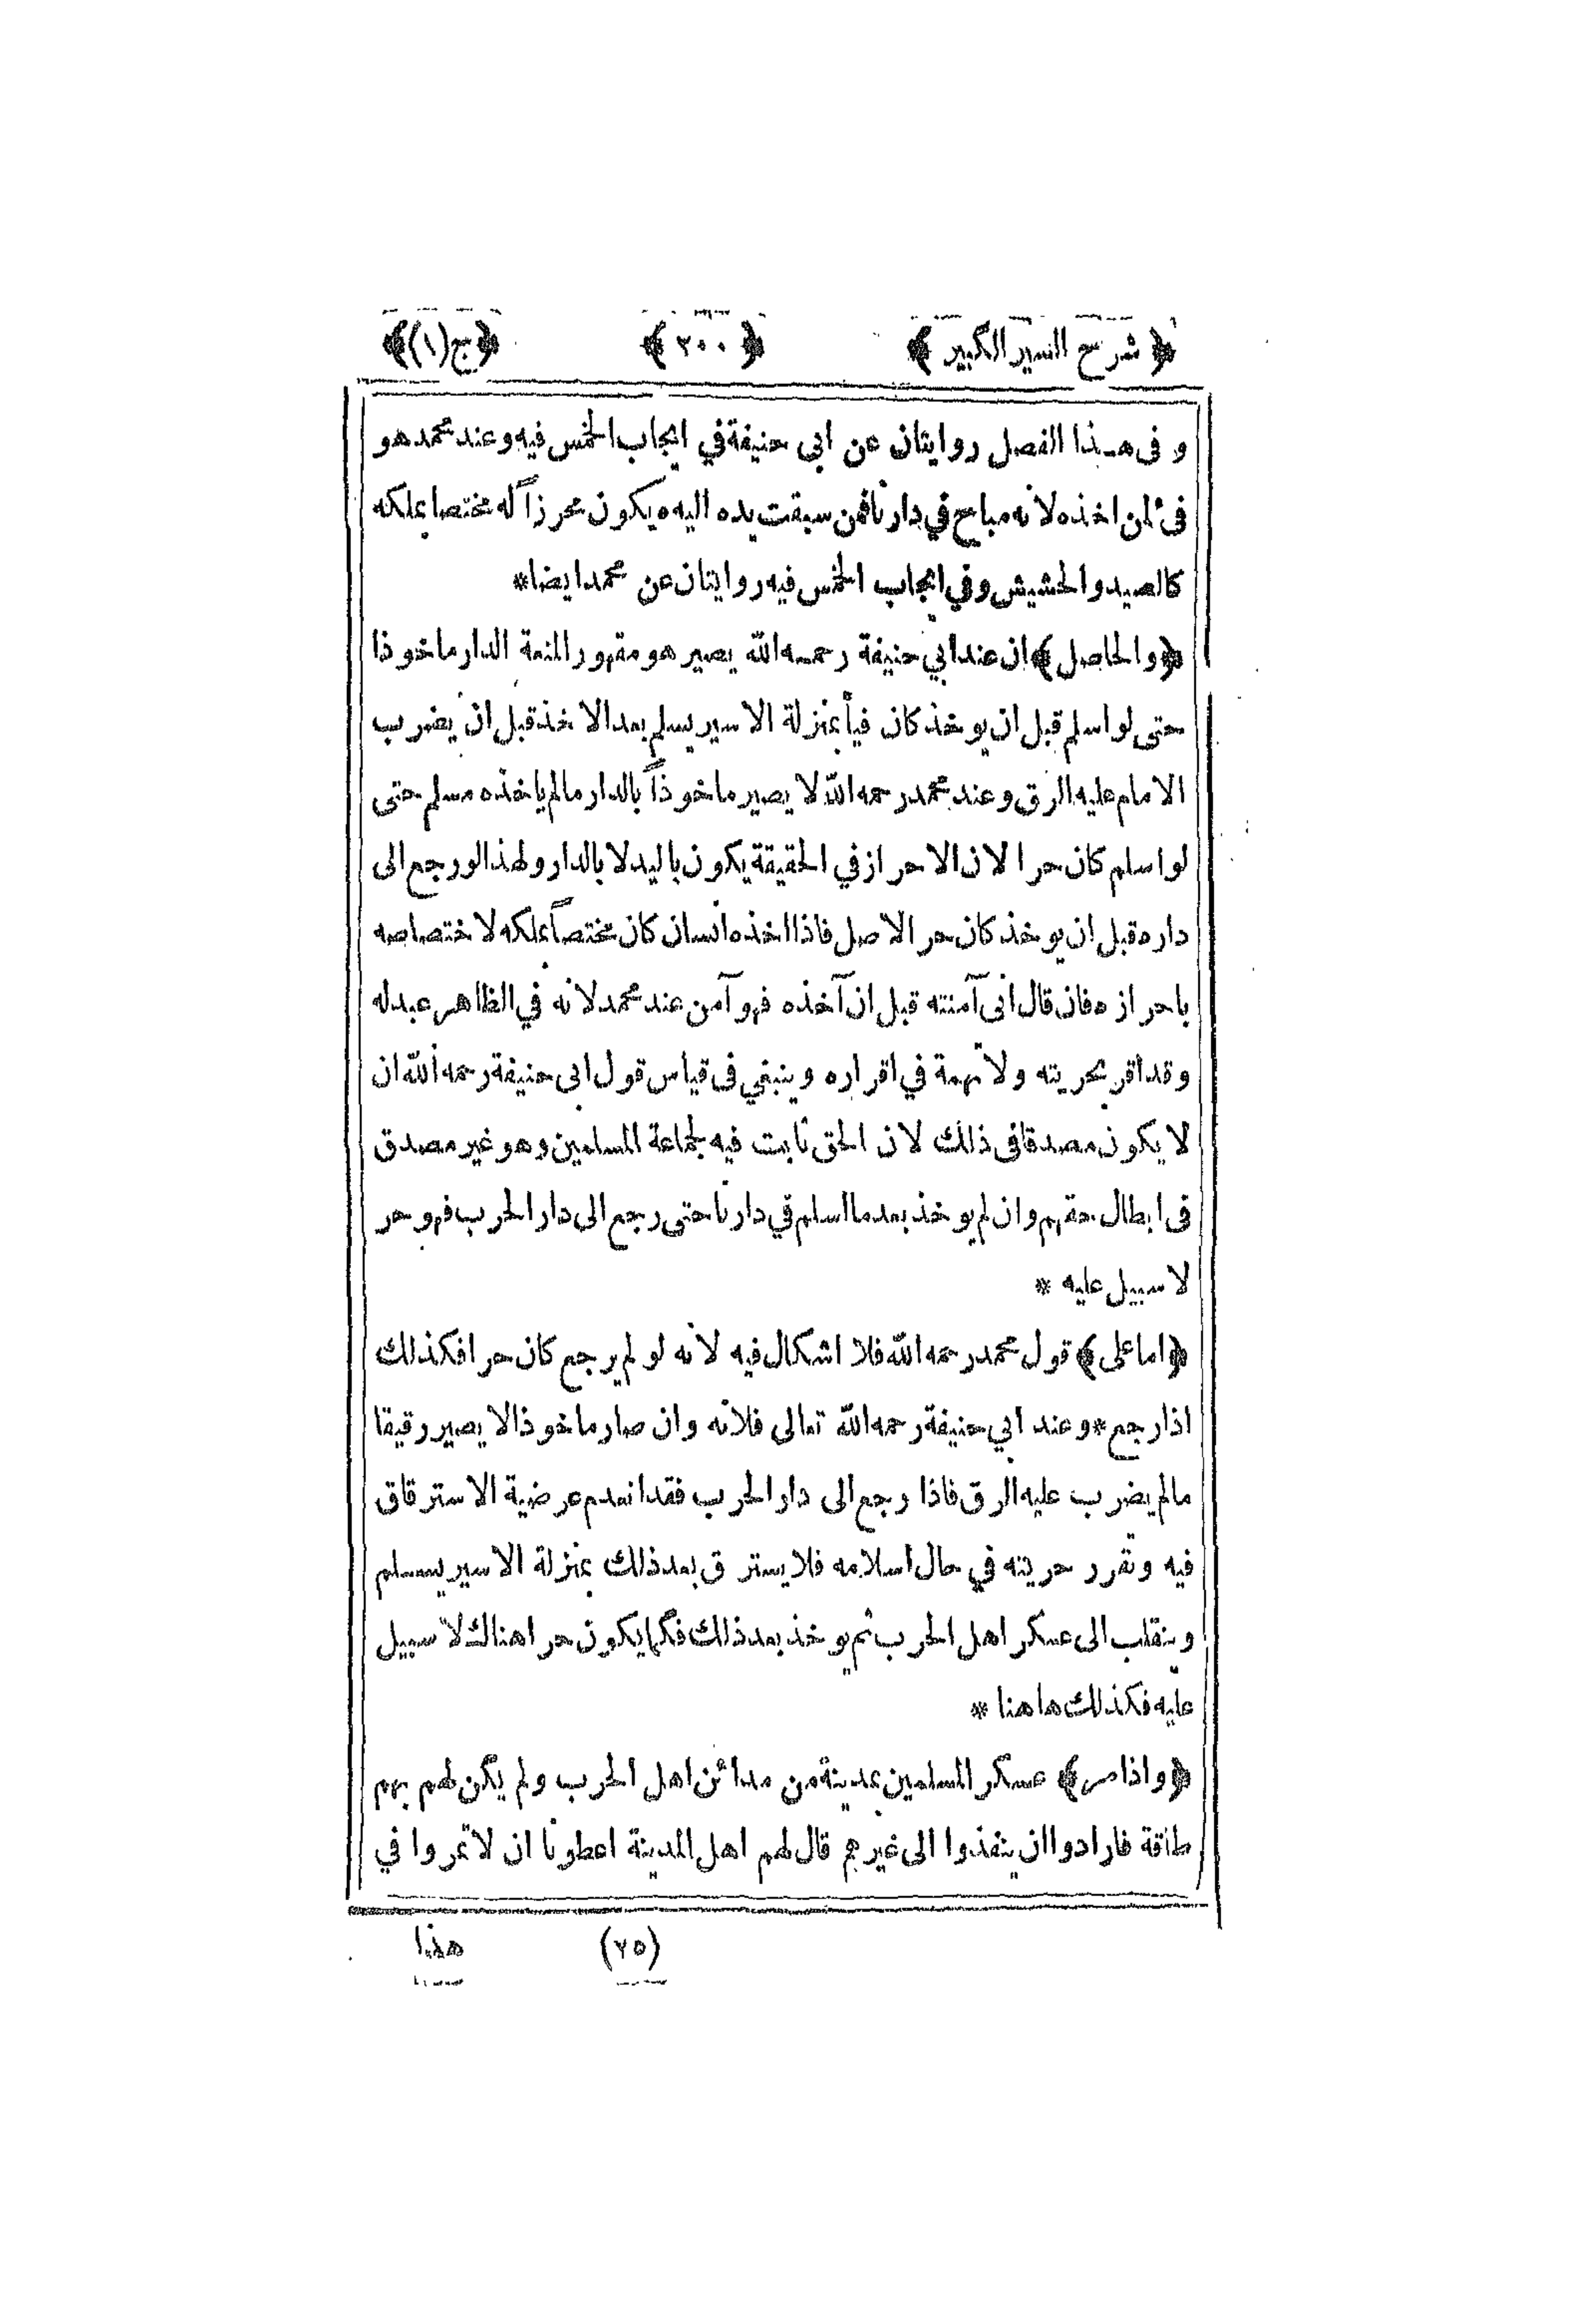 ﴿ شرح السير الكبير ﴾ ﴿ ٢٠٠ ﴾ ﴿ ج (١) ﴾
و فى هـذا الفصل روايتان عن ابى حنيفة في ايجاب الخمس فيه وعند محمد هو
فى ٔ لمن اخذه لانه مباح في دارنا فمن سبقت يده اليه يكون محرزاً له مختصا بملكه
كالصيد والحشيش وفي ايجاب الخمس فيه روايتان عن محمد ايضا*
﴿ والحاصل ﴾ ان عند ابي حنيفة رحمه الله يصير هو مقهورا لمنعة الدار ماخوذا
حتى لو اسلم قبل ان يوخذ كان فيأ بمنزلة الاسير يسلم بعد الاخذ قبل ان يضرب
الامام عليه الرق وعند محمد رحمه الله لا يصير ماخوذاً بالدار مالم ياخذه مسلم حتى
لو اسلم كان حرا لان الاحراز في الحقيقة يكون باليد لا بالدار ولهذا لو رجع الى
داره قبل ان يوخذ كان حر الاصل فاذا اخذه انسان كان مختصاً بملكه لاختصاصه
باحرازه فان قال انى آمنته قبل ان آخذه فهو آمن عند محمد لانه في الظاهر عبد له
وقد اقر بحريته ولا تهمة في اقراره وينبغي فى قياس قول ابى حنيفة رحمه الله ان
لا يكون مصدقا فى ذلك لان الحق ثابت فيه لجماعة المسلمين وهو غير مصدق
فى ابطال حقهم وان لم يوخذ بعد ما اسلم في دارنا حتى رجع الى دار الحرب فهو حر
لا سبيل عليه *
﴿ اما على ﴾ قول محمد رحمه الله فلا اشكال فيه لانه لو لم يرجع كان حرا فكذلك
اذا رجع * وعند ابي حنيفة رحمه الله تعالى فلانه وان صار ماخوذا لا يصير رقيقا
مالم يضرب عليه الرق فاذا رجع الى دار الحرب فقد انعدم عرضية الاسترقاق
فيه وتقرر حريته في حال اسلامه فلا يسترق بعد ذلك بمنزلة الاسير يسلم
وينقلب الى عسكر اهل الحرب ثم يوخذ بعد ذلك فكما يكون حرا هناك لا سبيل
عليه فكذلك هاهنا *
﴿ واذا مر ﴾ عسكر المسلمين بمدينة من مدائن اهل الحرب ولم يكن لهم بهم
طاقة فارادوا ان ينفذوا الى غيرهم قال لهم اهل المدينة اعطونا ان لا تمروا في
(٢٥) هذا